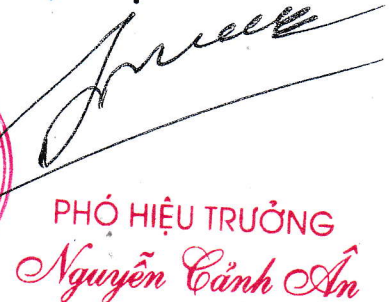 PHÓ HIỆU TRƯỞNG
Nguyễn Cảnh Ân